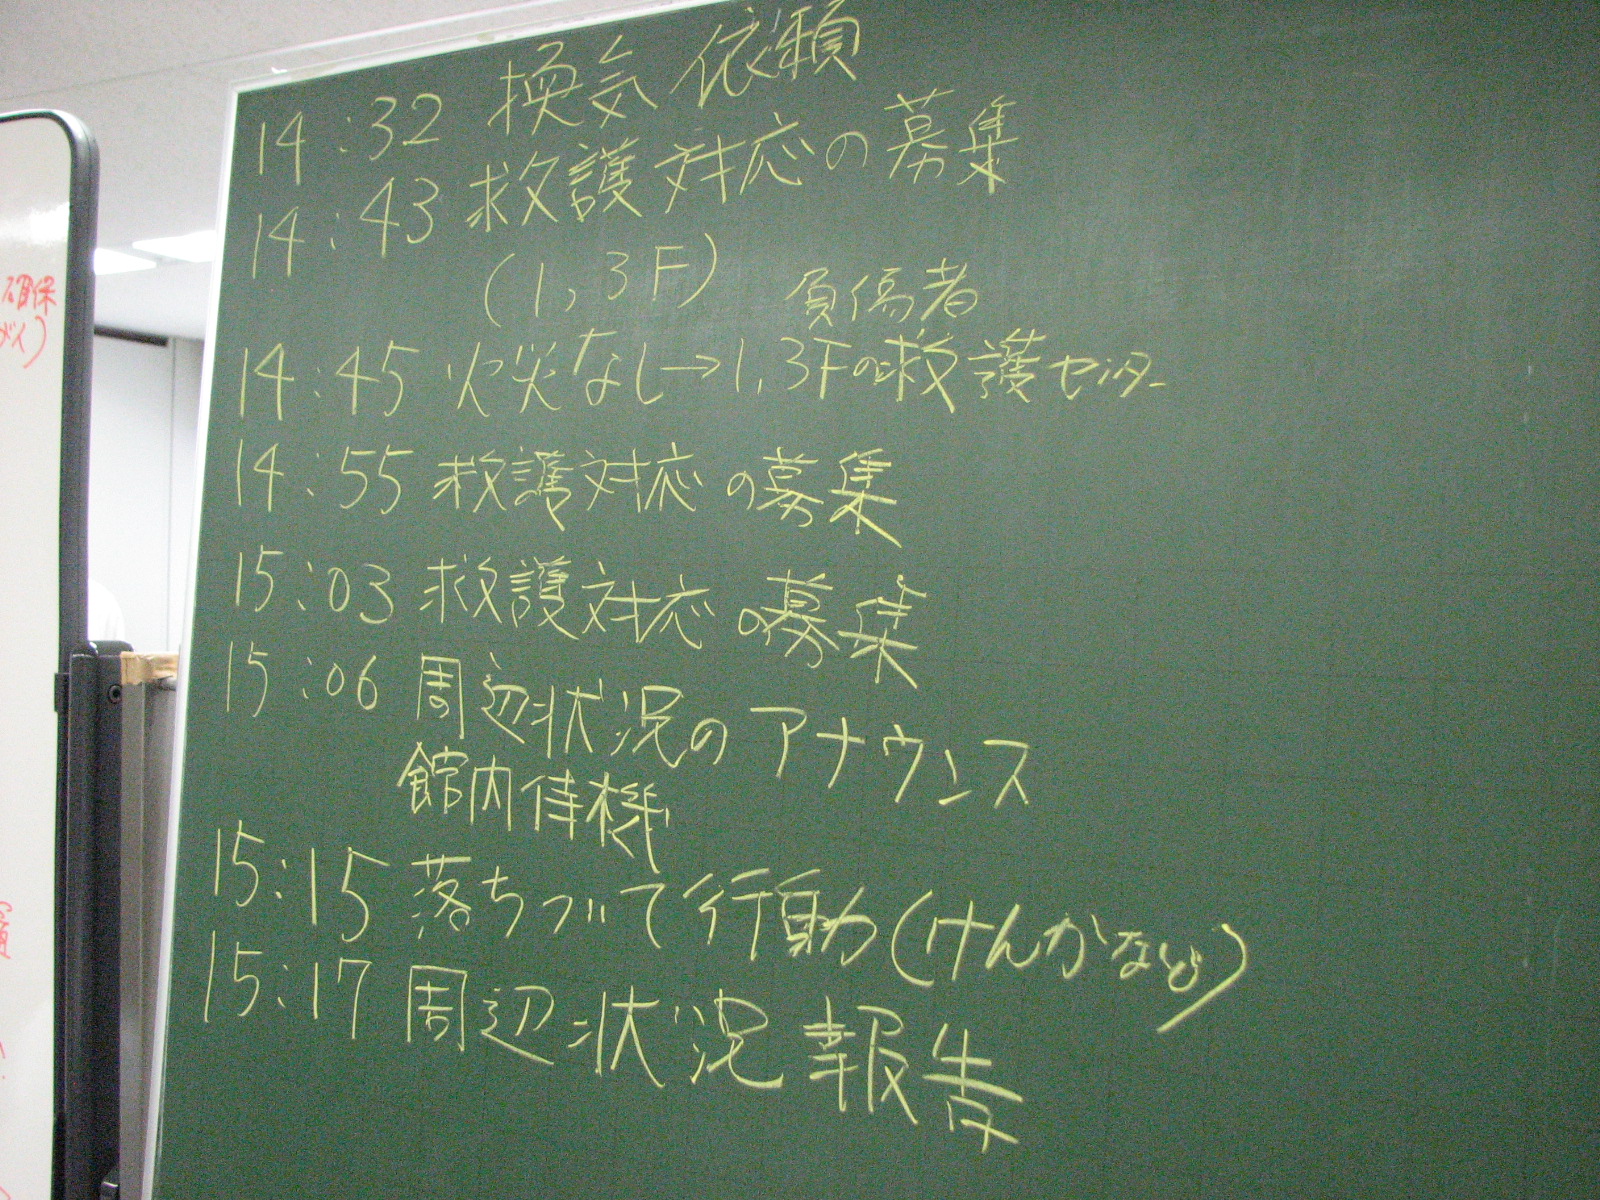 14:32 換気依頼
14:43 救護対応の募集
(1,3F)
負傷者
14:45 火災なし→1,3Fの救護センター
14:55 救護対応の募集
15:03 救護対応の募集
15:06 周辺状況のアナウンス
館内待機
15:15 落ちついて行動(けんかなど)
15:17 周辺状況報告
確保